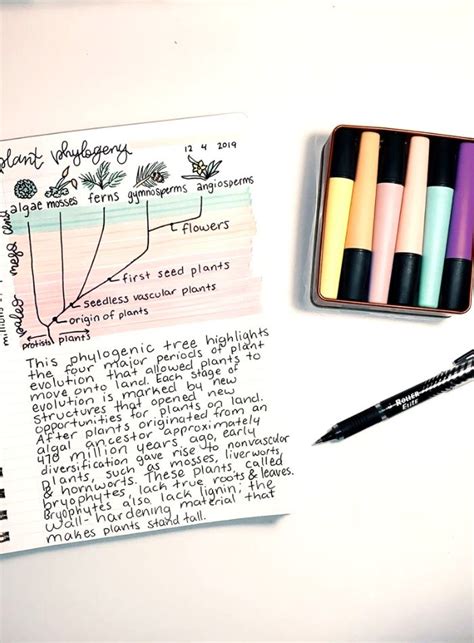 plant phylogeny
12 4 2019
algae mosses ferns gymnosperms angiosperms
flowers
first seed plants
seedless vascular plants
origin of plants
protists plants
paleo meso ceno
This phylogenic tree highlights
the four major periods of plant
evolution that allowed plants to
move onto land. Each stage of
evolution is marked by new
structures that opened new
opportunities for plants on land.
After plants originated from an
algal ancestor approximately
470 million years, ago, early
diversification gave rise to nonvascular
plants, such as mosses, liverworts,
& hornworts. These plants, called
bryophytes, lack true roots & leaves.
Bryophytes also lack lignin; the
wall-hardening material that
makes plants stand tall.
Roller
Elite